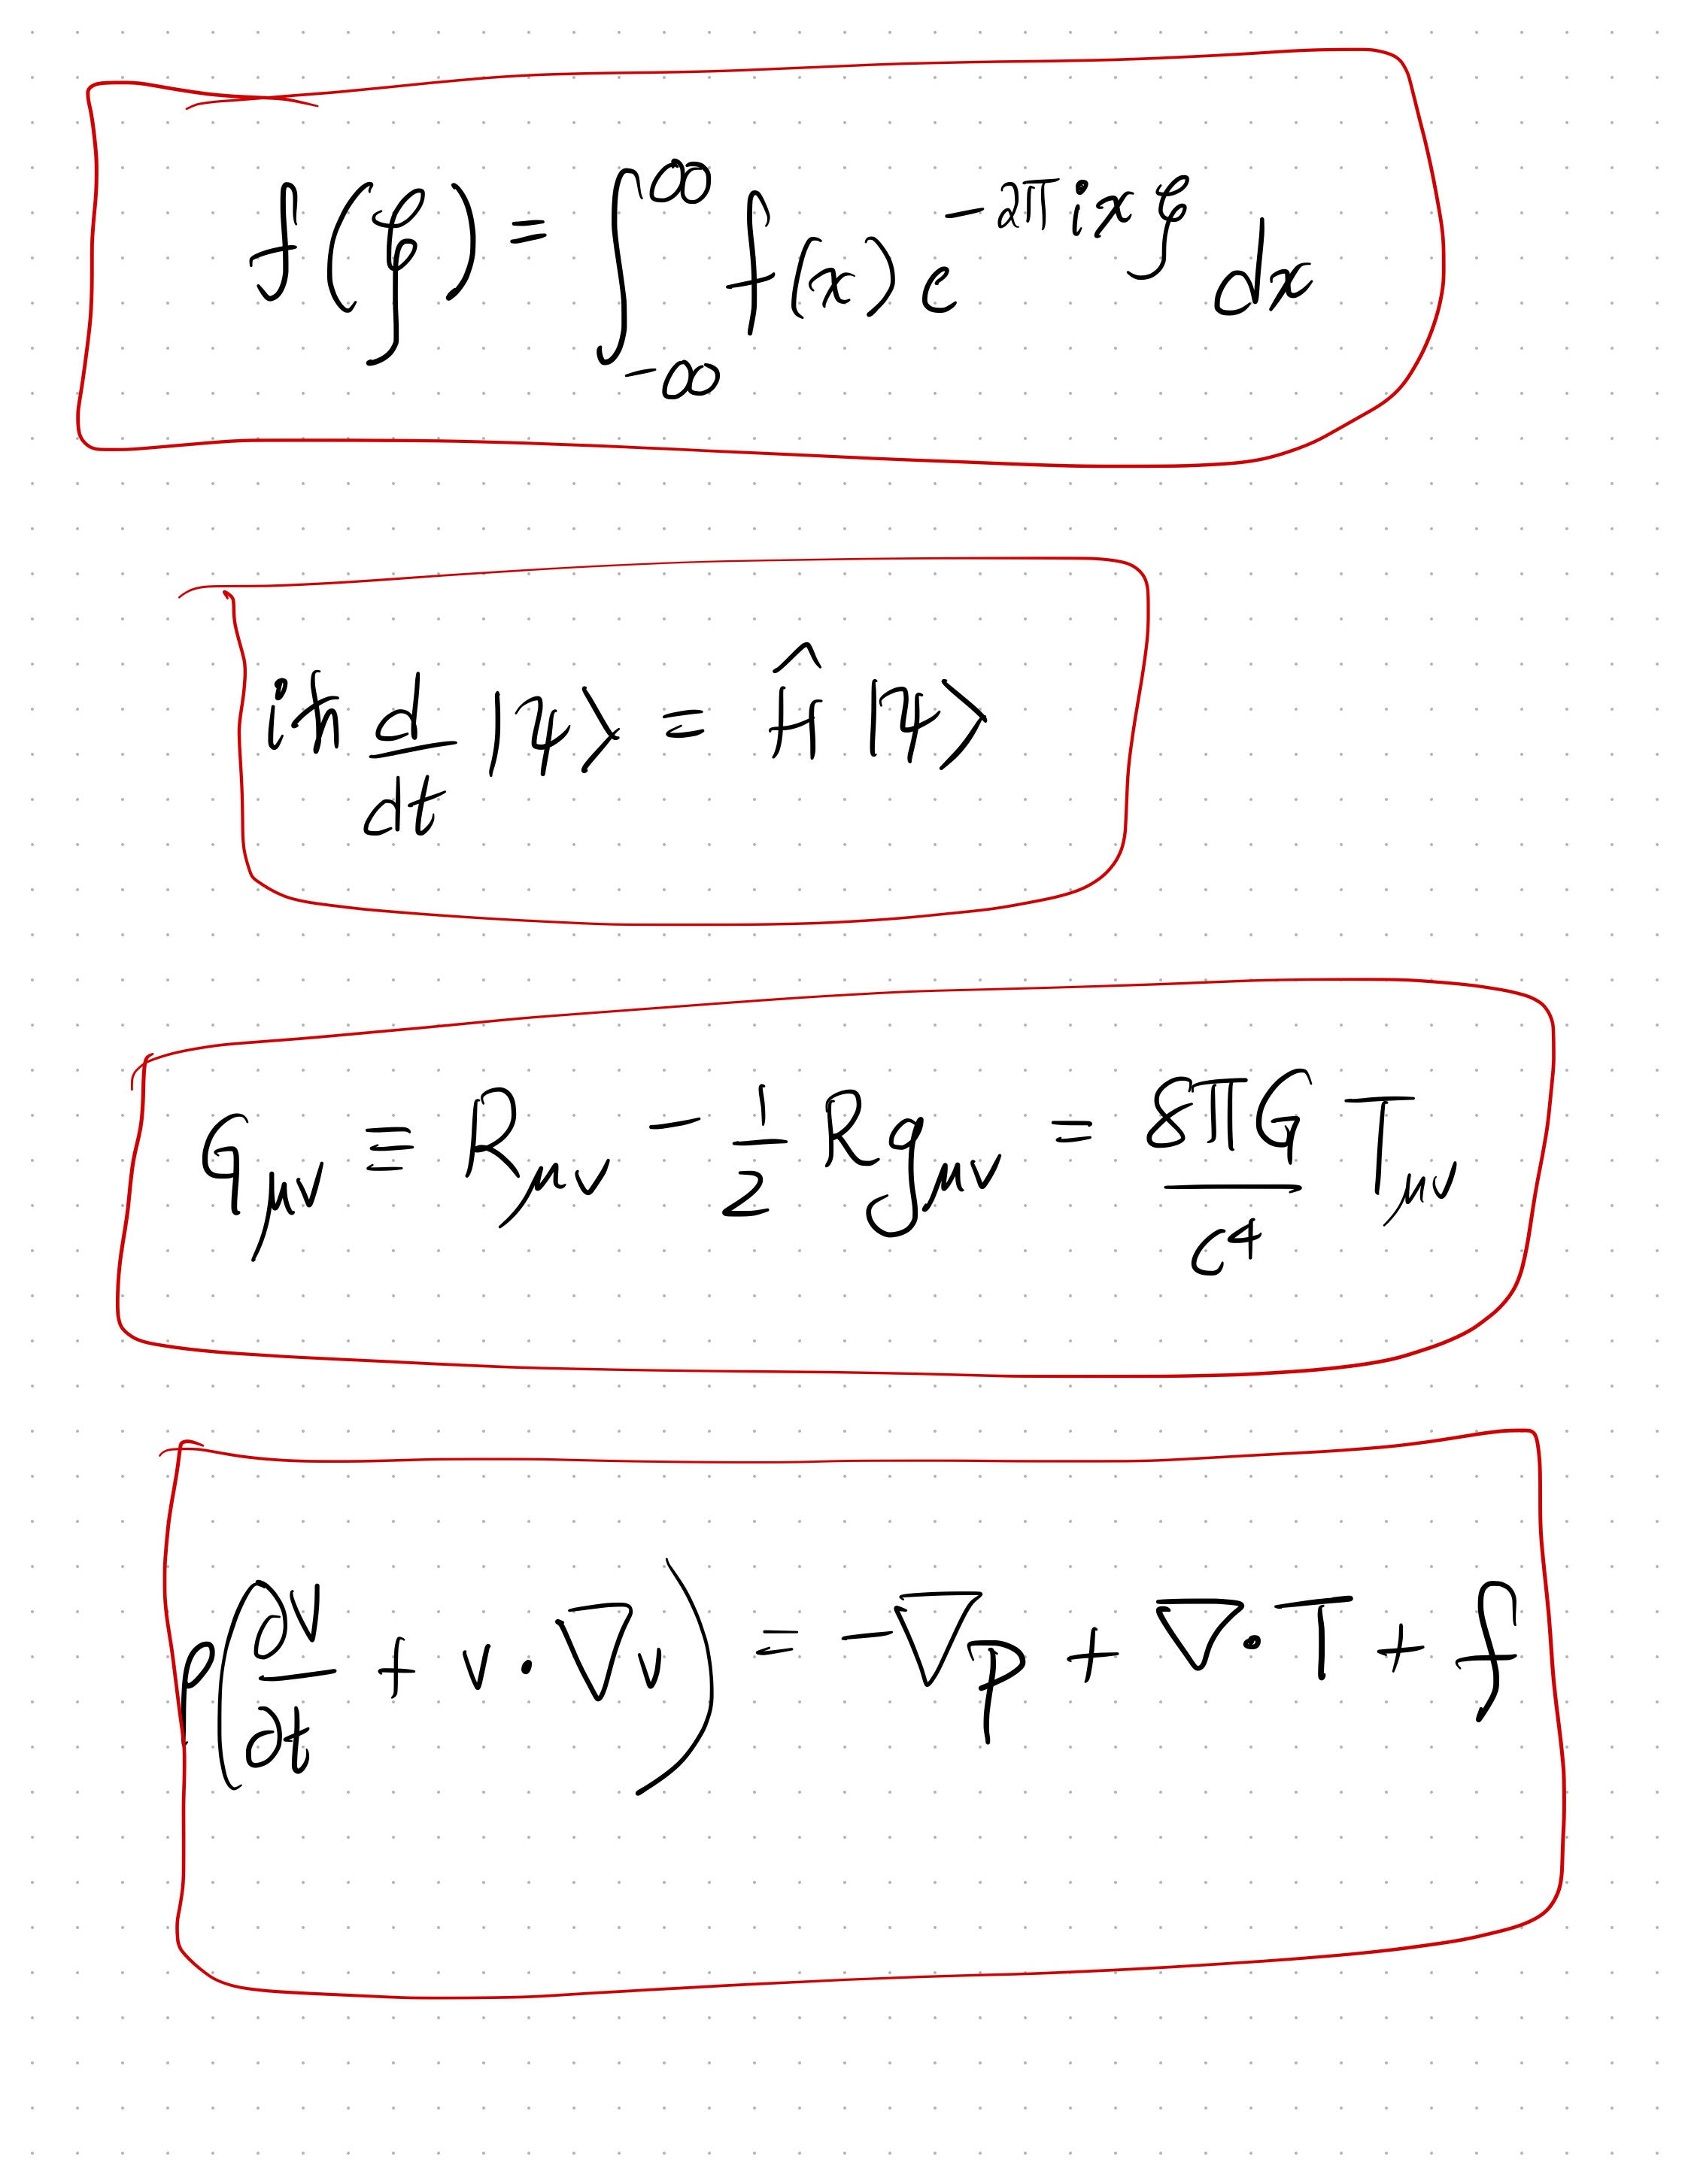 f(ξ) = ∫_{-∞}^{∞} f(x) e^{-2πixξ} dx
iħ d/dt |ψ⟩ = Ĥ |ψ⟩
G_{μν} ≡ R_{μν} - 1/2 Rg_{μν} = 8πG/c⁴ T_{μν}
ρ(∂v/∂t + v · ∇v) = -∇p + ∇·T + f